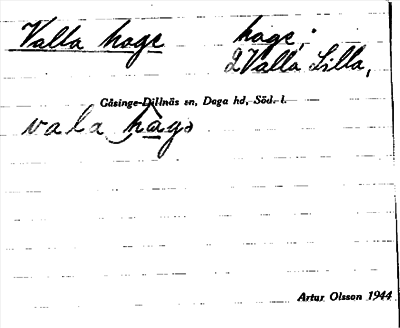 Valla hage hage;
2 Valla Lilla,
Gåsinge-Dillnäs sn, Daga hd, Söd. l.
vala hags
Artur Olsson 1944